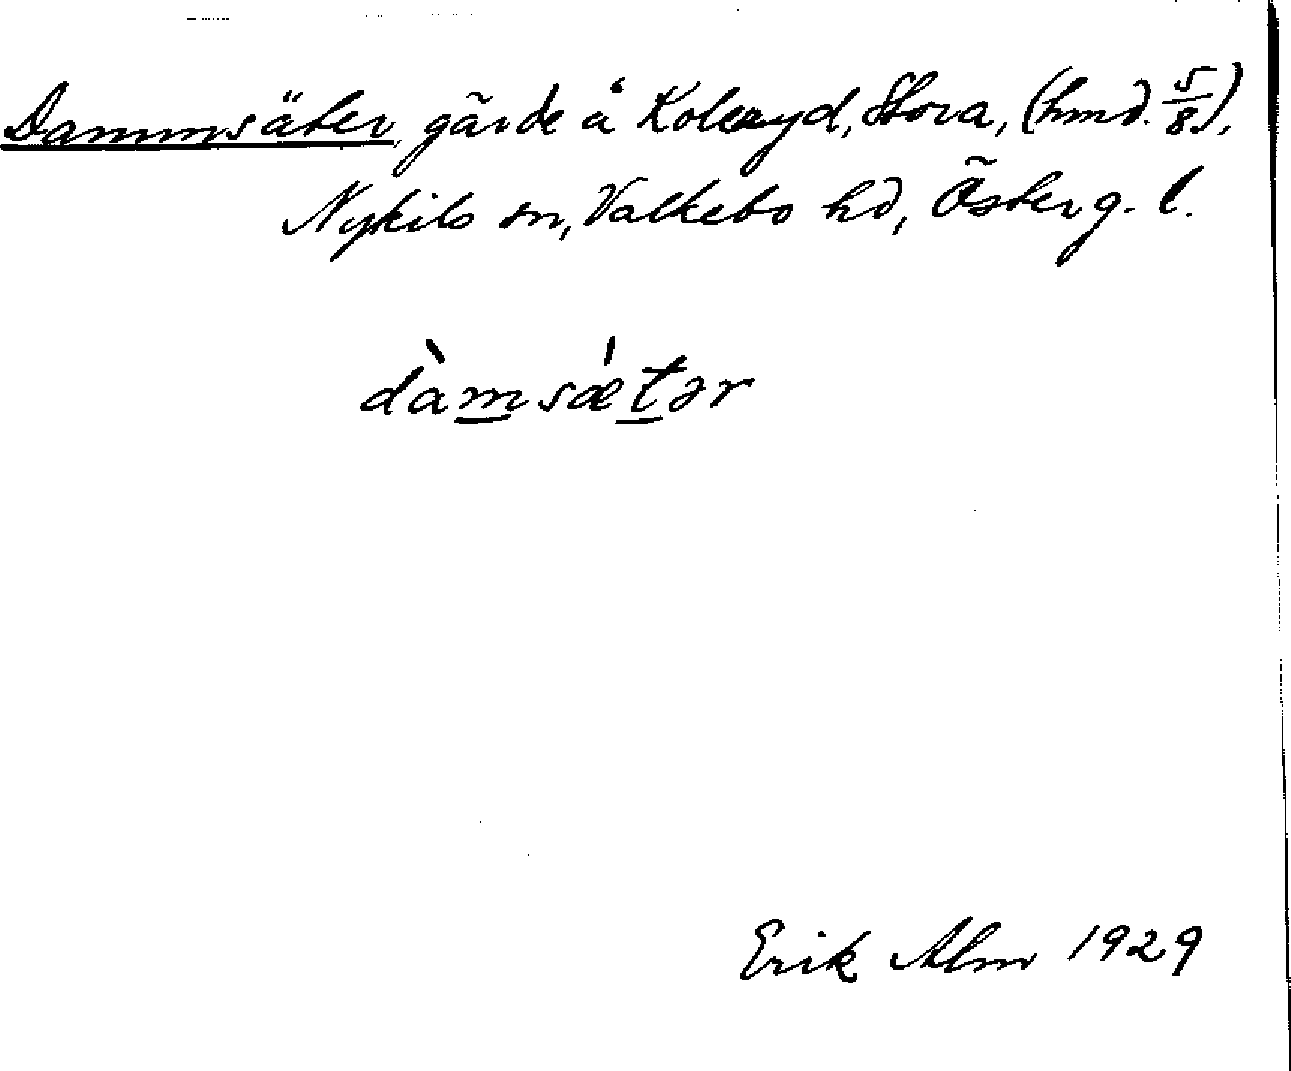 Dammsäter, gärde å Koleryd, Stora, (hmd. 5/8),
Nykils sn, Valkebo hd, Österg. l.
dàmsǽtər
Erik Alm 1929